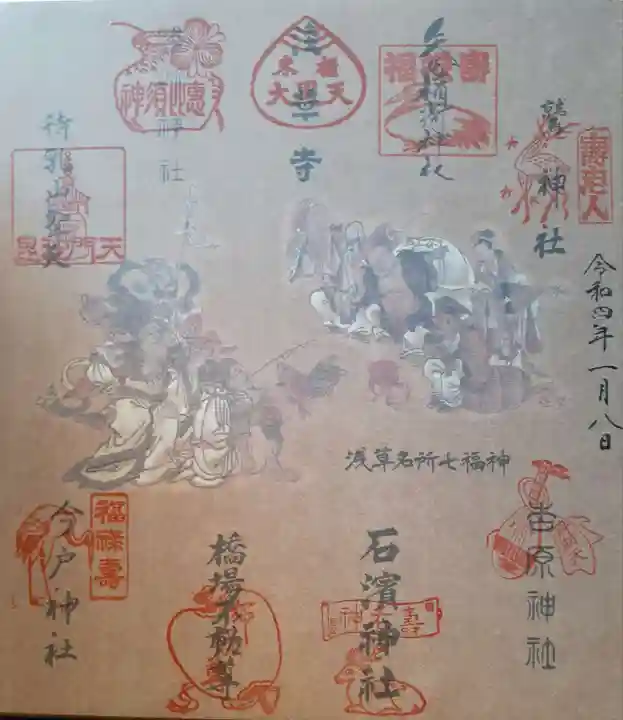 鷲神社
壽老人
令和四年一月八日
矢先稲荷神社
福禄壽
浅草寺
米福
大黒天
浅草神社
恵比須神
待乳山聖天
毘沙門天
浅草名所七福神
吉原神社
石濱神社
壽老神
橋場不動尊
今戸神社
福禄壽